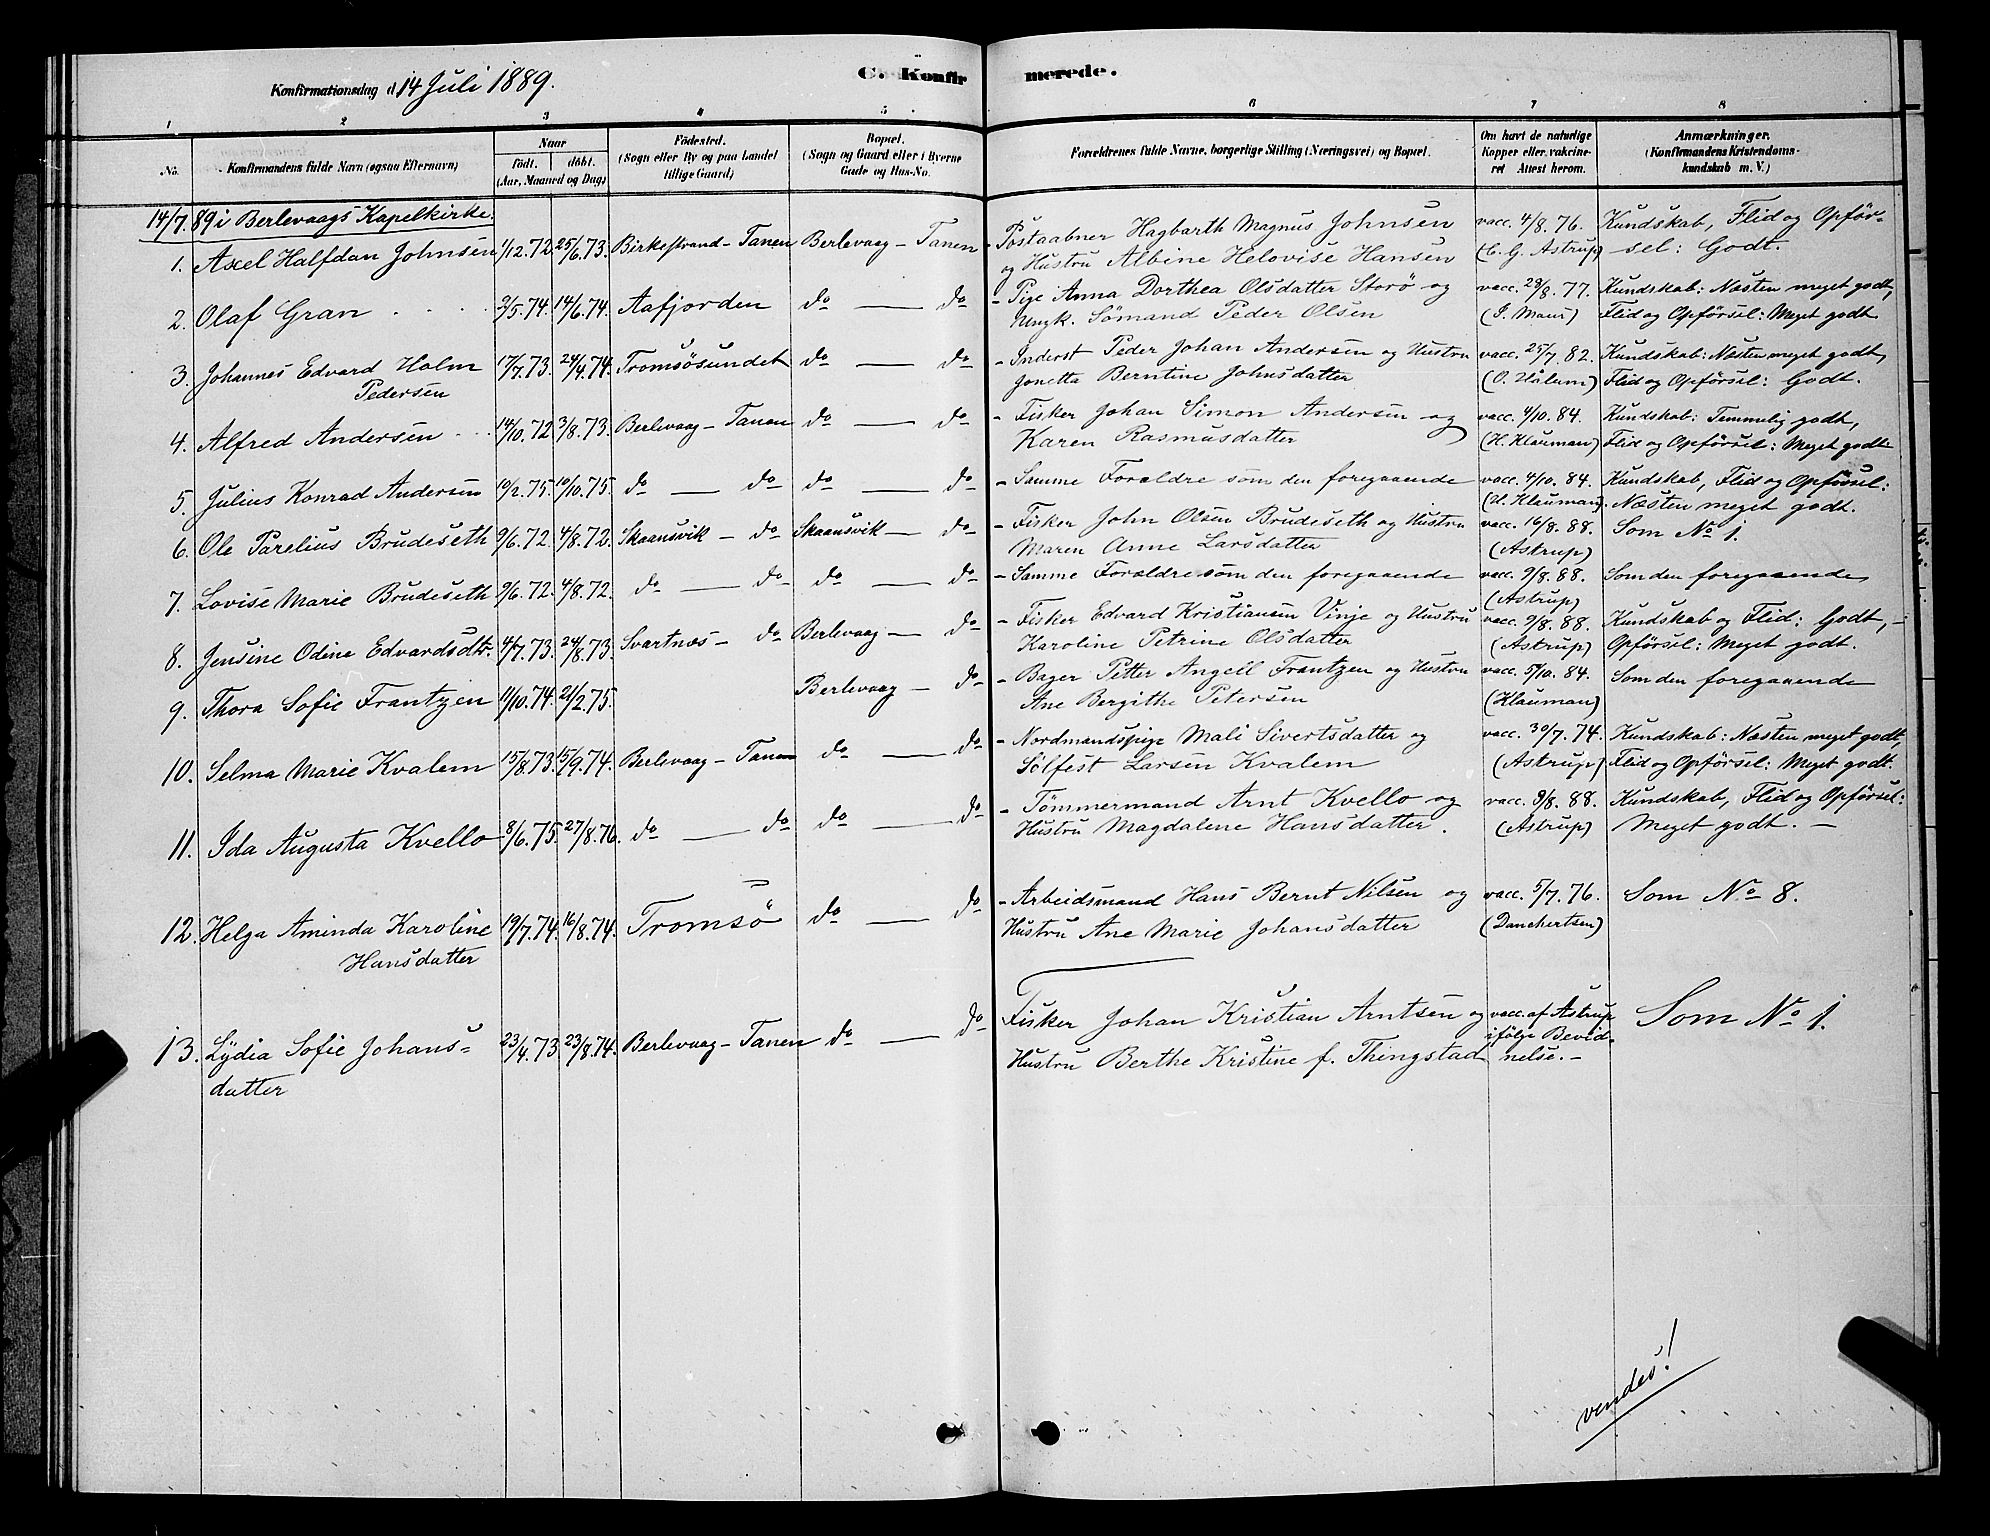 C. Konfir merede.
Konfirmationsdag d 14 Juli 1889.
1 2 3 4 5 6 7 8
No. Konfirmandens fulde Navn (ogsaa Efternavn) Naar födt. döbt. (Aar, Maaned og Dag) Födested. (Sogn eller By og paa Landet tillige Gaard) Bopæl. (Sogn og Gaard eller i Byerne Gade og Hus-No. Forældrenes fulde Navne, borgerlige Stilling (Næringsvei) og Bopæl. Om havt de naturlige Kopper eller vakcineret Attest herom. Anmærkninger. (Konfirmandens Kristendomskundskab m. V.)
14/7 89 i Berlevaags Kapelkirke.
1. Axel Halfdan Johnsen 1/12.72. 25/6.73. Birkestrand - Tanen Berlevaag - Tanen - Postaabner Hagbarth Magnus Johnsen vacc. 4/8.76. Kundskab, Flid og Opför-
og Hustru Albine Helovise Hansen (C. G. Astrup) sel: Godt.
2. Olaf Gran 2/5.74. 14/6.74. Aafjorden do do - Pige Anna Dorthea Olsdatter Storö og vacc. 28/8.77. Kundskab: Næsten meget godt,
Ungk. Sömand Peder Olsen Flid og Opförsel: Meget godt
3. Johannes Edvard Holm 17/7.73. 24/4.74. Tromsösundet do do - Inderst Peder Johan Andersen og Hustru vacc. 25/7.82. Kundskab: Næsten meget godt,
Pedersen Jonetta Berntine Johnsdatter Flid og Opförsel: Godt.
4. Alfred Andersen 14/10.72 3/8.73. Berlevaag - Tanen do do - Fisker Johan Simon Andersen og vacc. 4/10.84. Kundskab: Temmelig godt,
Karen Rasmusdatter (H. Klauman) Flid og Opförsel: Meget godt
5. Julius Konrad Andersen 19/2.75. 10/10.75. do do do do - Samme Forældre som den foregaaende vacc. 4/10.84. Kundskab, Flid og Opförsel:
(H. Klauman) Næsten meget godt.
6. Ole Parelius Brudeseth 9/6.72. 4/8.72. Skaansvik - do Skaansvik - do - Fisker John Olsen Brudeseth og Hustru vacc. 16/8.88. Som No 1.
Maren Anne Larsdatter (Astrup)
7. Lovise Marie Brudeseth 9/6.72. 4/8.72. do do do do - Samme Forældre som den foregaaende vacc. 9/8.88. Som den foregaaende
(Astrup)
8. Jensine Odine Edvardsdtr. 4/7.73. 24/8.73. Svartnæs - do Berlevaag - do - Fisker Edvard Kristiansen Vinje og Hustru vacc. 9/8.88. Kundskab og Flid: Godt, -
Karoline Petrine Olsdatter (Astrup) Opförsel: Meget godt.
9. Thora Sofie Frantzen 11/10.74. 21/2.75. Berlevaag - do - Bager Petter Angell Frantzen og Hustru vacc. 5/10.84. Som den foregaaende
Ane Bergithe Petersen (Klauman)
10. Selma Marie Kvalem 15/8.73. 15/9.74. Berlevaag - Tanen do do - Nordmandspige Mali Sivertsdatter og vacc. 30/7.74. Kundskab: Næsten meget godt,
Sölfest Larsen Kvalem (Astrup) Flid og Opförsel: Meget godt.
11. Ida Augusta Kvello 8/6.75. 27/8.76. do do do do - Tömmermand Arnt Kvello og vacc. 9/8.88. Kundskab, Flid og Opförsel:
Hustru Magdalene Hansdatter. (Astrup) Meget godt. -
12. Helga Aminda Karoline 19/7.74. 16/8.74. Tromsö do do - Arbeidsmand Hans Bernt Nilsen og vacc. 5/7.76. Som No 8.
Hansdatter Hustru Ane Marie Johansdatter (Danchertsen)
13. Lydia Sofie Johans- 23/4.73 23/8.74. Berlevaag - Tanen do do Fisker Johan Kristian Arntsen og vacc. af Astrup Som No 1.
datter Hustru Berthe Kristine f. Thingstad ifölge Bevid-
nelse. -
vendes!